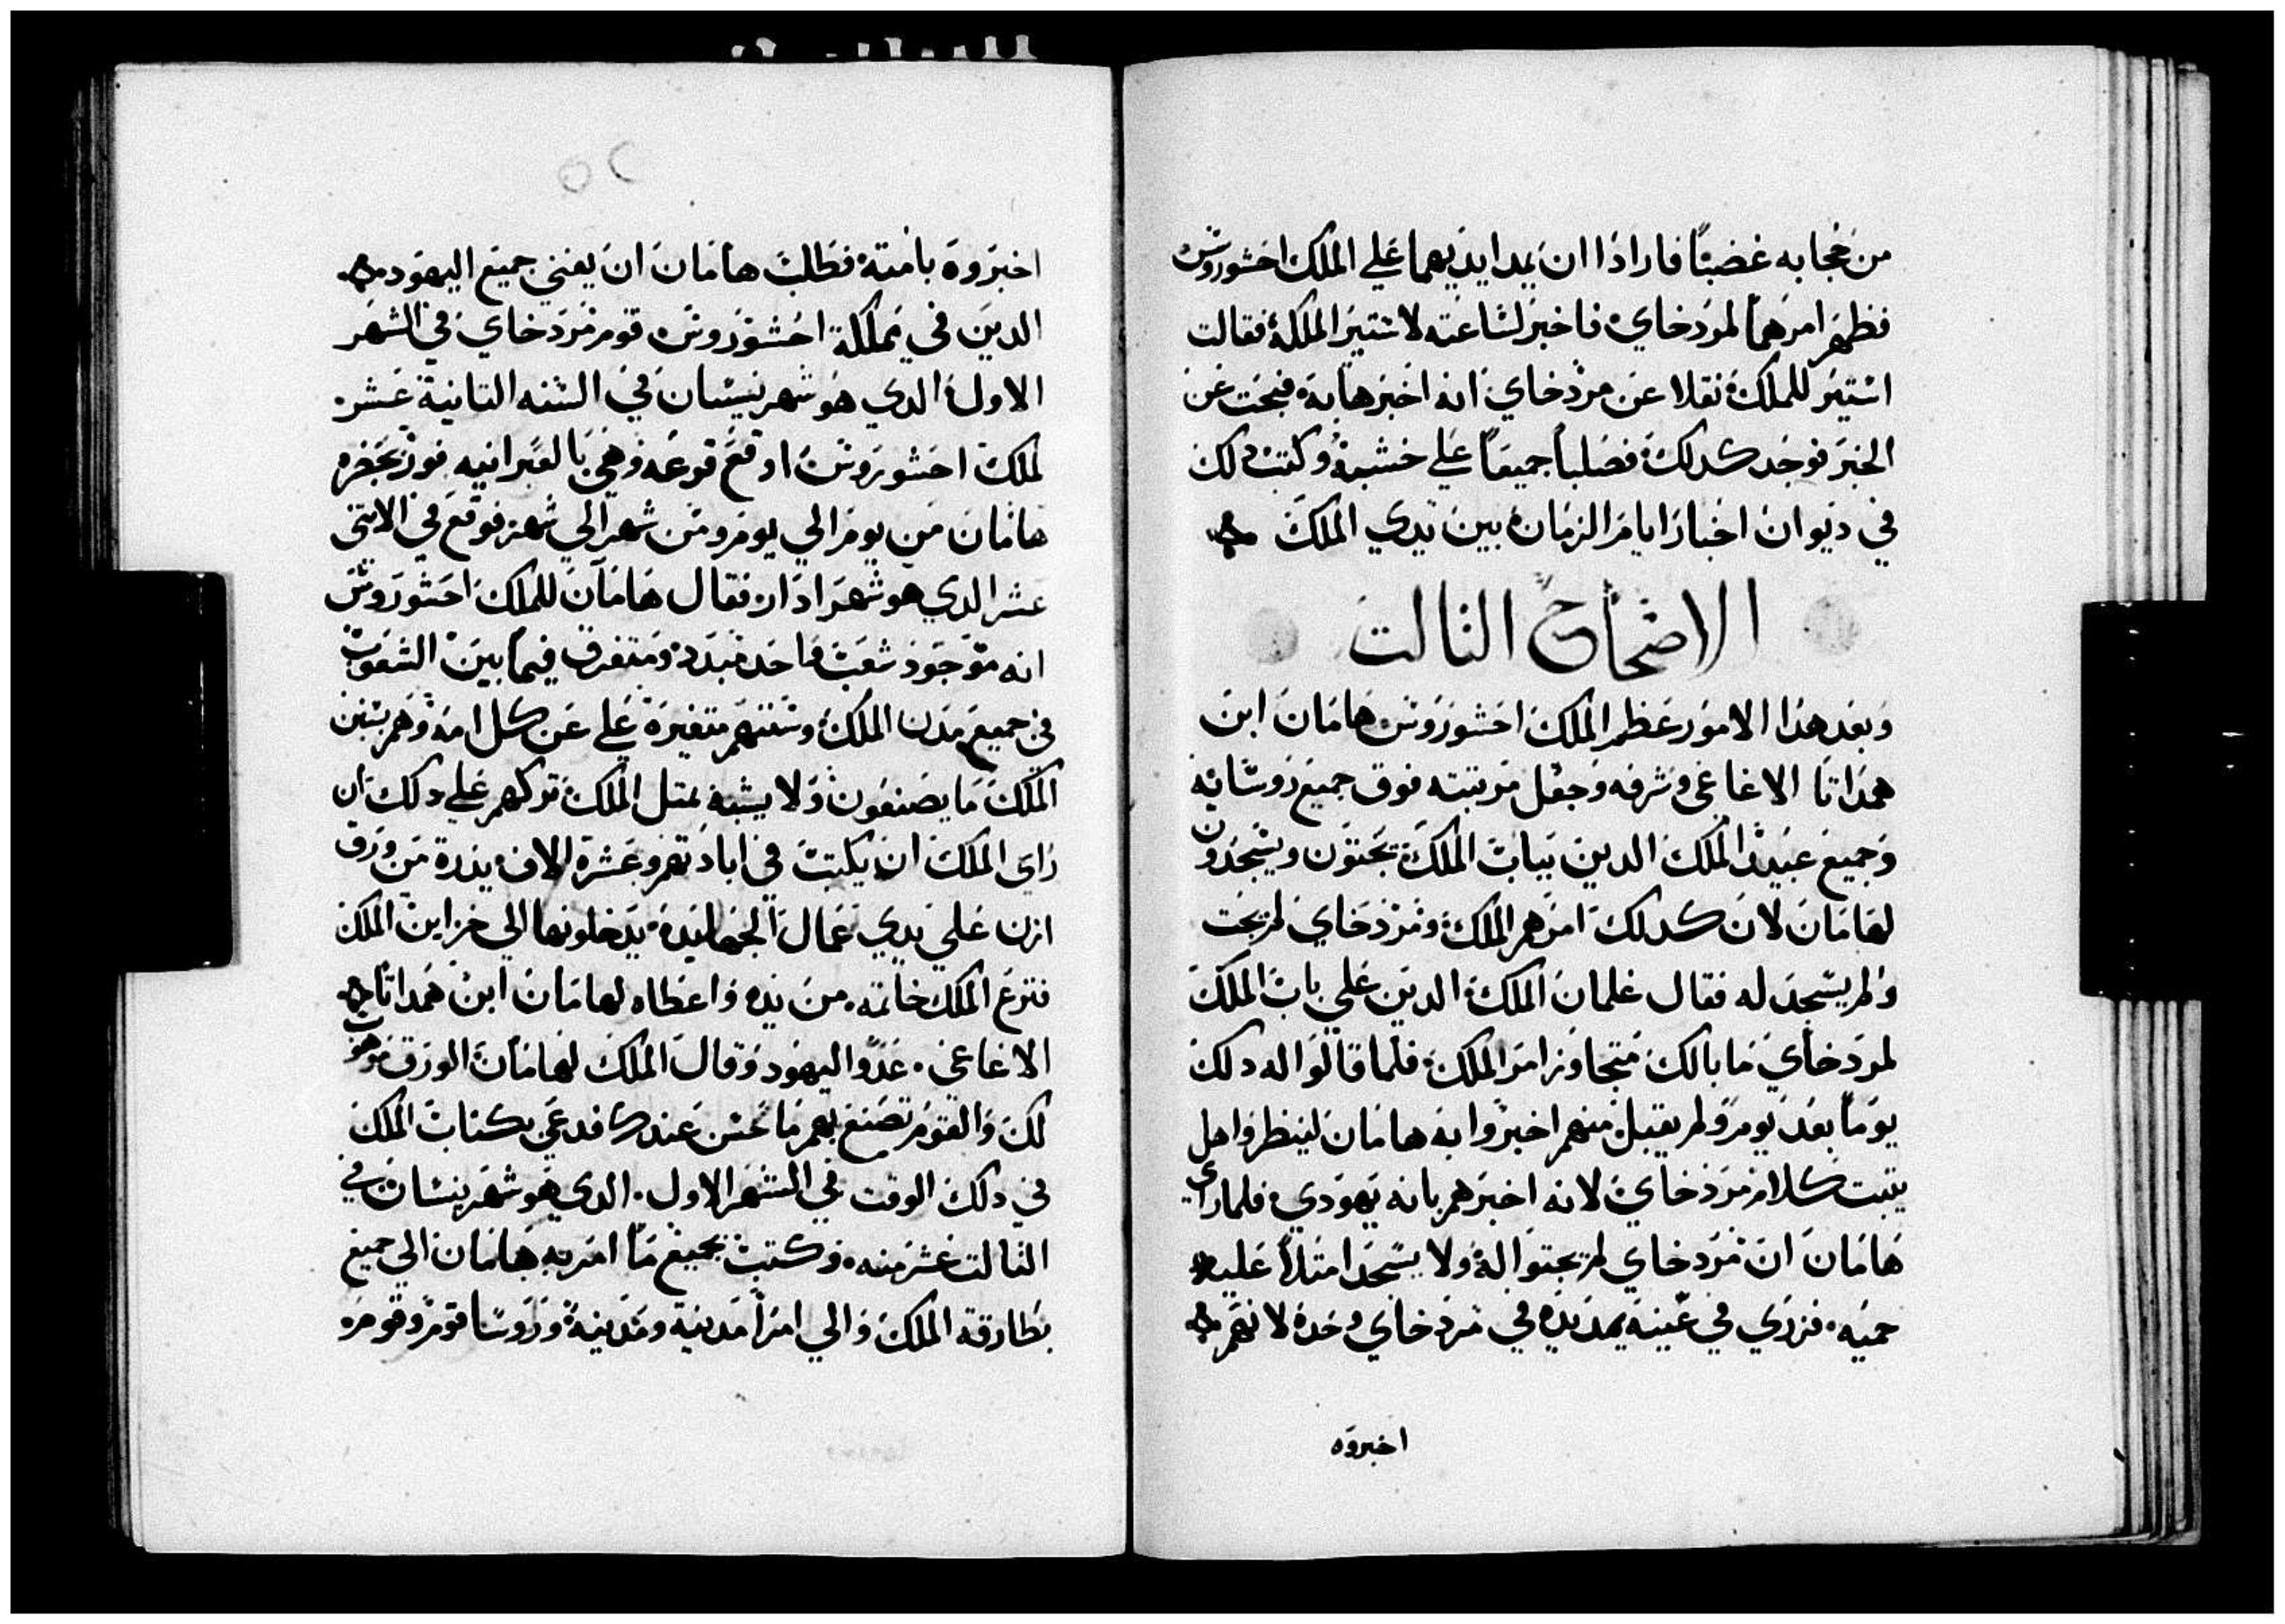 من حجابه غضبتا فارادا ان يمدا ايديهما علي الملك احشوروش
فظهر امرهما لمردخاي فاخبر لساعته لاستير الملكة فقالت
استير للملك نقلا عن مردخاي انه اخبرها به فبحت عن
الخبر فوجد كدلك فصلبا جميعا علي خشبة وكتب دلك
في ديوان اخبار ايام الزمان بين يدي الملك
الاصحاح التالت
وبعد هدا الامور عظم الملك احشوروش هامان ابن
همداتا الاغاغي وشرفه وجعل مرتبته فوق جميع روسايه
وجميع عبيد الملك الدين بباب الملك يجتون ويسجدون
لهامان لان كدلك امرهم الملك ومردخاي لم يجت
ولم يسجد له فقال غلمان الملك الدين علي باب الملك
لمردخاي ما بالك متجاوز امر الملك فلما قالوا له دلك
يوما بعد يوم ولم يقبل منهم اخبروا به هامان لينظروا هل
يتبت كلام مردخاي لانه اخبرهم بانه يهودي فلما راي
هامان ان مردخاي لم يجتوا له ولا يسجد امتلا عليه
حميه فزري في عينه يمد يده في مردخاي وحده لانهم
اخبروه
اخبروه بامته فطلب هامان ان يفني جميع اليهود
الدين في مملكة احشوروش قوم مردخاي في الشهر
الاول الدي هو شهر نيسان في السنه التانية عشر
لملك احشوروش اوقع قرعه وهي بالعبرانيه فور بحضره
هامان من يوم الي يوم ومن شهر الي شهر فوقع في الاتني
عشر الدي هو شهر ادار فقال هامان للملك احشوروش
انه موجود شعب واحد مبدد ومتفرق فيما بين الشعوب
في جميع مدن الملك وسننهم متغيرة علي عن كل امه وهم بسنن
الملك ما يصنعون ولا يشبه بمتل الملك تركهم علي دلك ان
راي الملك ان يكتب في ابادتهم وعشرة الاف بدرة من ورق
ازن علي يدي عمال الجهابدة يدخلونها الي خزاين الملك
فنزع الملك خاتمه من يده واعطاه لهامان ابن همداتا
الاغاغي عدو اليهود وقال الملك لهامان الورق موهوب
لك والقوم تصنع بهم ما حسن عندك فدعي بكتاب الملك
في دلك الوقت في الشهر الاول الدي هو شهر نيسان في
التالت عشر منه وكتب بجميع ما امر به هامان الي جميع
بطارقه الملك والي امرا مدينة ومدينة وروسا قوم وقوم